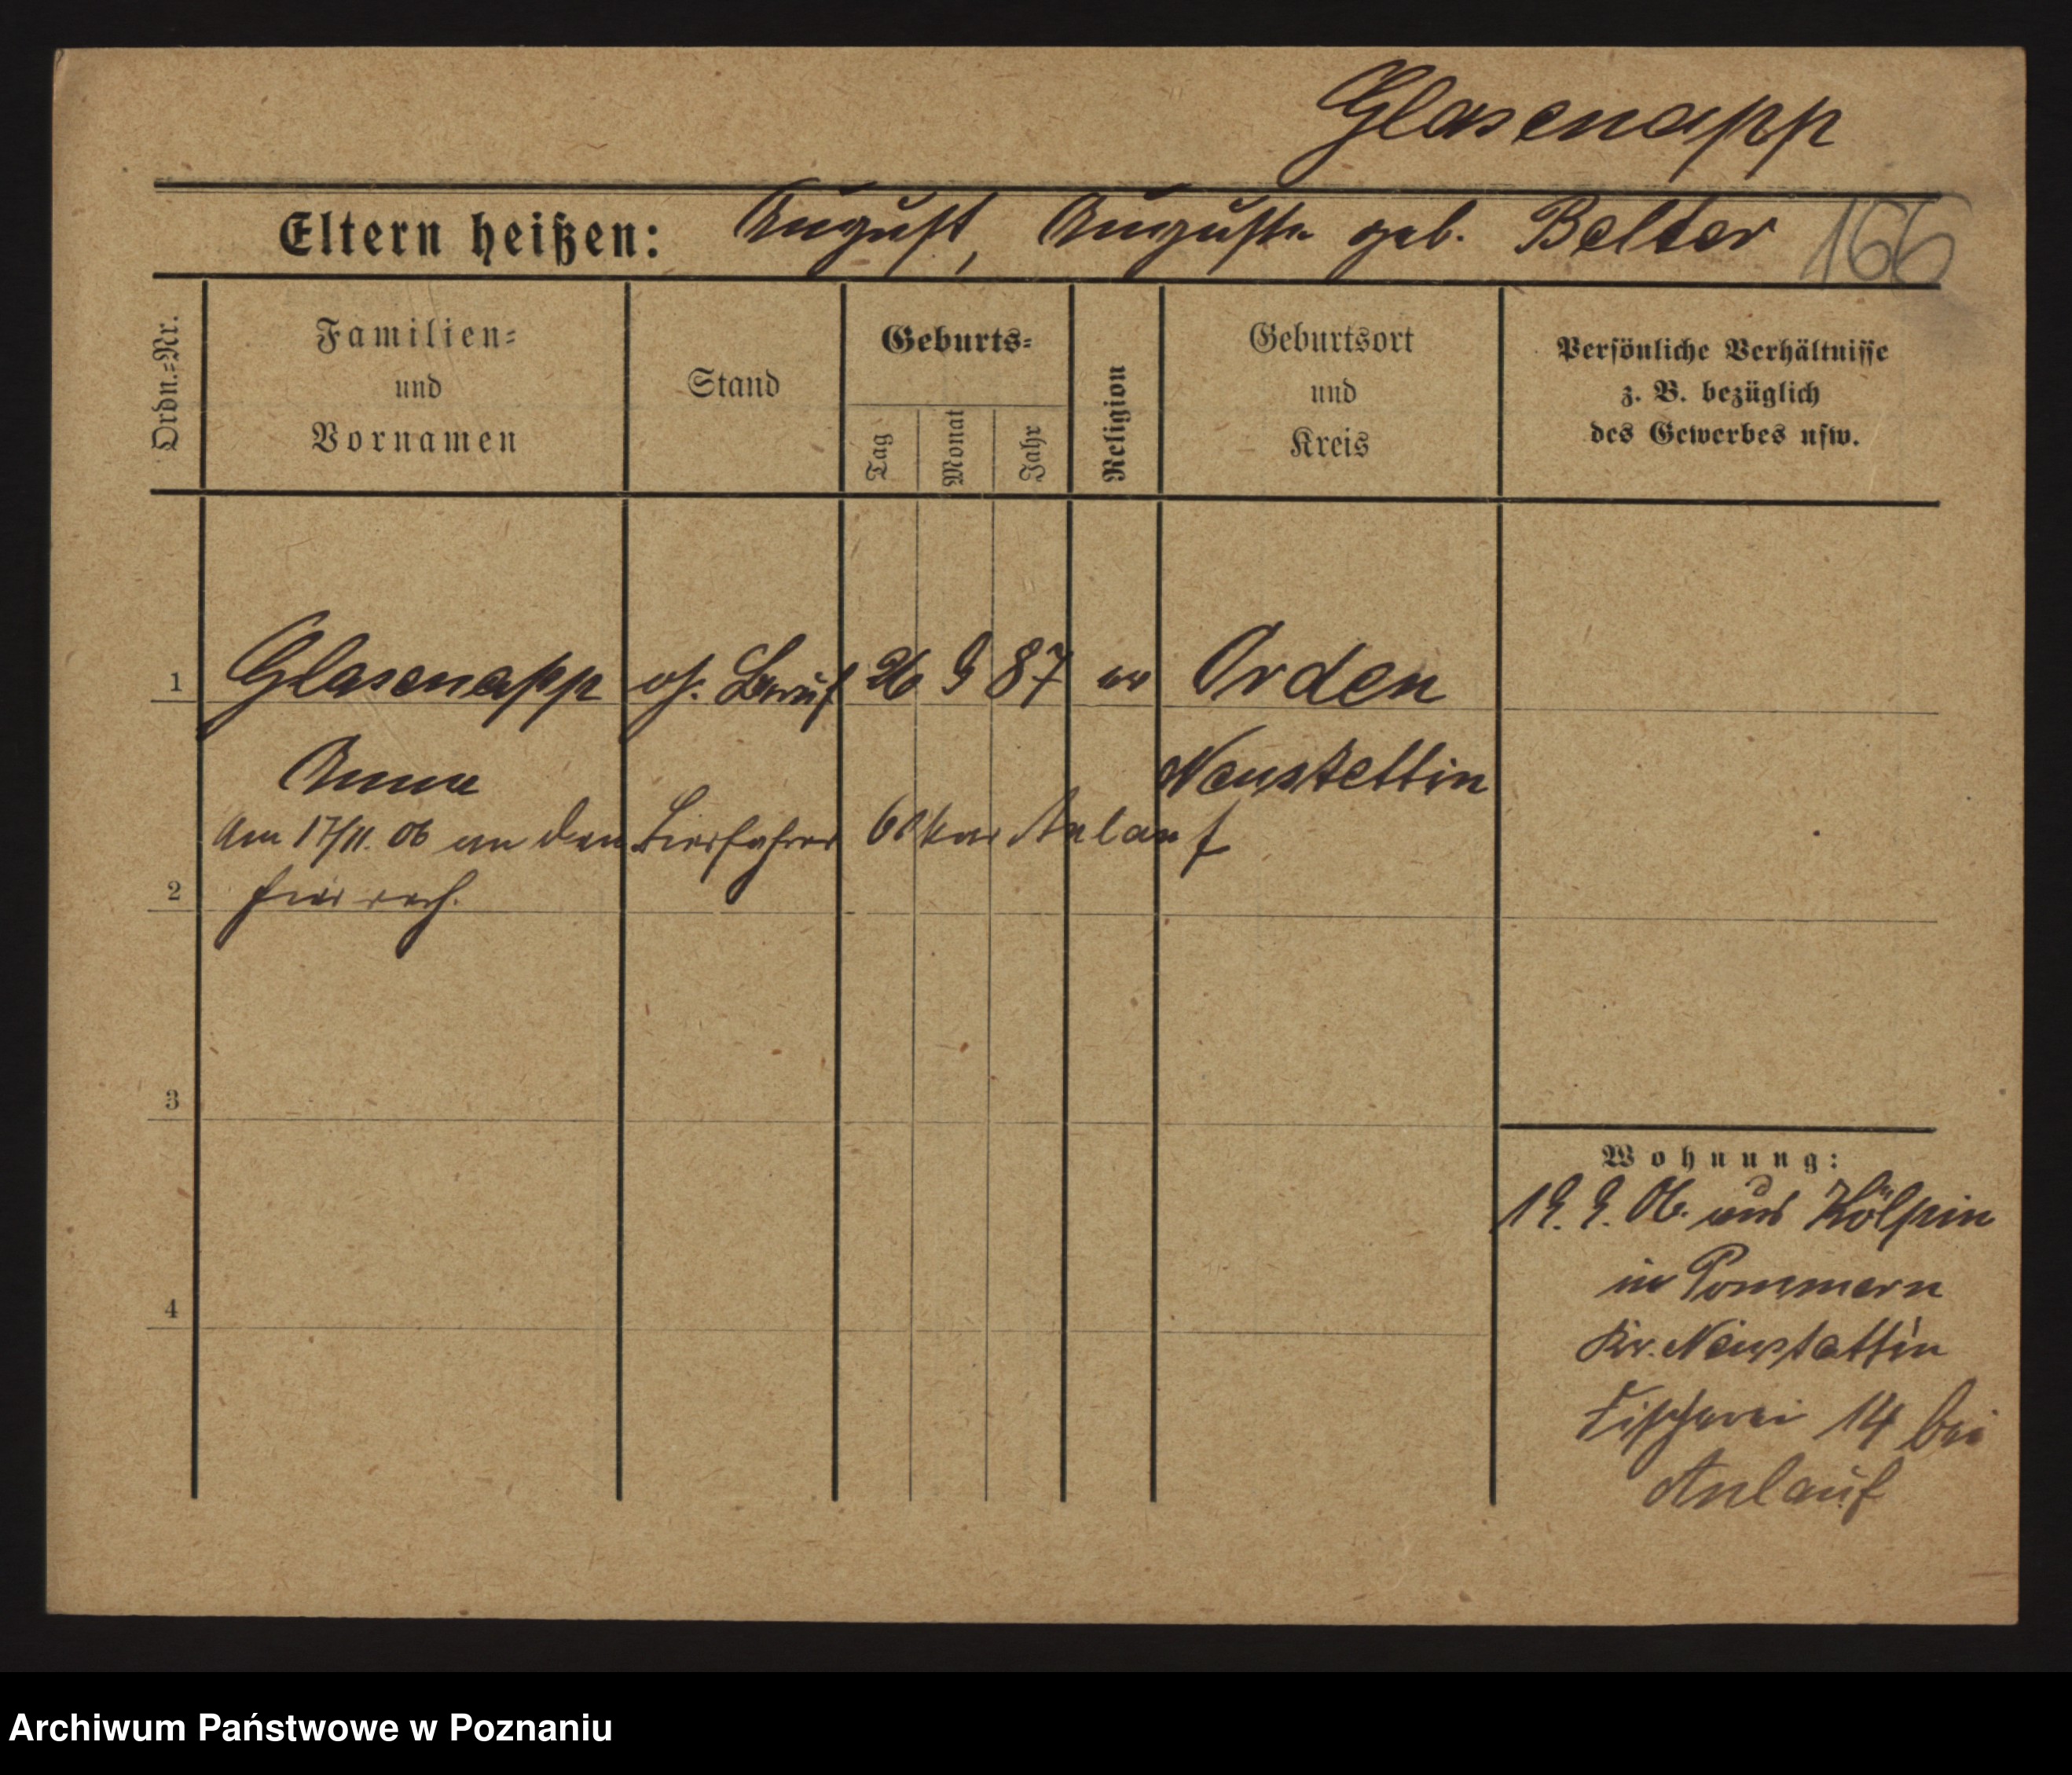 Glasenapp
Eltern heißen: August, Auguste geb. Belter 166
Ordn.-Nr.
Familien-
und
Vornamen
Stand
Geburts-
Tag
Monat
Jahr
Religion
Geburtsort
und
Kreis
Persönliche Verhältnisse
z. B. bezüglich
des Gewerbes usw.
1 Glasenapp oh. Beruf 26 9 87 ev Orden
Anna Neustettin
Am 17/11. 06 an den Bierfahrer Oskar Anlauf
2 hier verh.
3
4
Wohnung:
19. 9. 06. aus Kölpin
in Pommern
Kr. Neustettin
Fischerei 14 bei
Anlauf
Archiwum Państwowe w Poznaniu